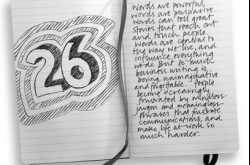 26
Words are powerful,
words are persuasive.
words can tell great
stories that reach out
and touch people.
Words are central to
the way we live, and
influence everything
we do. But so much
business writing is
boring, unimaginative
and forgettable. People
being increasingly
frustrated by mindless
jargon and meaningless
phrases that fustrate
communications and
make life at work so
much harder.